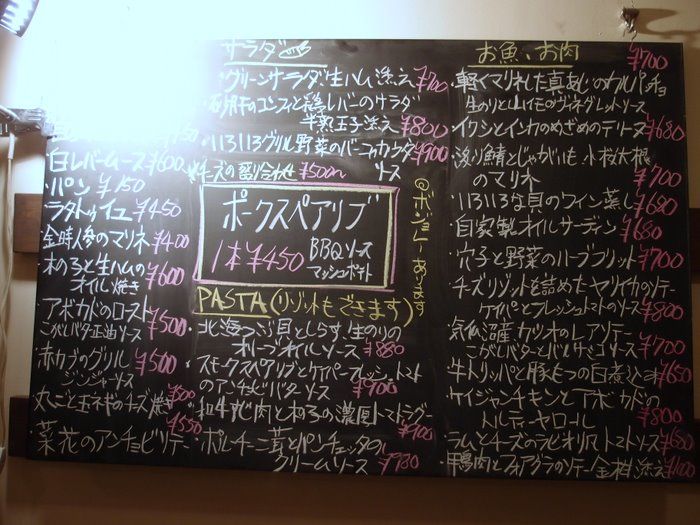 ¥150
白レバームース ¥600
・パン ¥150
・ラタトゥイユ ¥450
・金時人参のマリネ ¥400
・木の子と生ハムの
オイル焼き ¥600
・アボカドのロースト
こがしバター正油ソース ¥500
・赤カブのグリル
ジンジャーソース ¥500
・丸ごと玉ネギのチーズ焼き ¥500
・菜花のアンチョビソテー ¥550
サラダ
・グリーンサラダ、生ハム添え ¥700
・砂肝のコンフィと鶏レバーのサラダ
半熟玉子添え ¥800
・いろいろグリル野菜のバーニャカウダ
ソース ¥900
チーズの盛り合わせ ¥500〜
ポークスペアリブ
1本 ¥450
BBQソース
マッシュポテト
@ボジョレーあります
PASTA(リゾットもできます)
・北海つぶ貝としらす、生のりの
オリーブオイルソース ¥880
・スモークスペアリブとケイパー、フレッシュトマト
のアンチョビバターソース ¥900
・和牛すじ肉と木の子の濃厚トマトラグー
¥900
・ポルチーニ茸とパンチェッタの
クリームソース ¥980
お魚、お肉
¥700
・軽くマリネした真あじのカルパッチョ
生のりと山イモのヴィネグレットソース
・イワシとインカのめざめのテリーヌ ¥680
・炙り鯖とじゃがいも、小桜大根
のマリネ ¥700
・いろいろな貝のワイン蒸し ¥680
・自家製オイルサーディン ¥680
・穴子と野菜のハーブフリット ¥700
・チーズリゾットを詰めたヤリイカのソテー
ケイパーとフレッシュトマトのソース ¥800
・気仙沼産カツオのレアソテー
こがしバターとバルサミコソース ¥700
・牛トリッパと豚もつの白煮込み ¥650
・ケイジャンチキンとアボカドの
トルティーヤロール ¥800
・ラムとチーズのラビオリ風 トマトソース ¥680
・鴨肉とフォアグラのソテー 金柑添え ¥1100